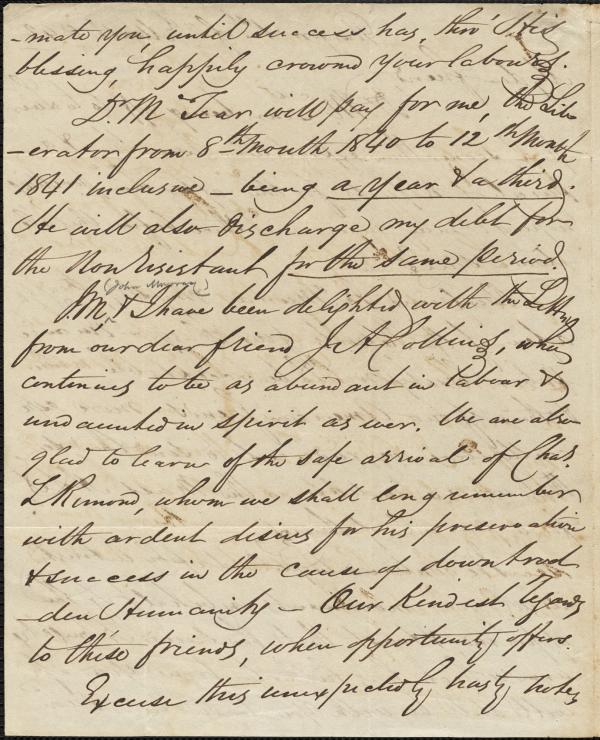 -mate you, until success has, thro' His
blessing, happily crownd your labours.
Dr. M'Tear will pay for me, the Lib
-erator from 8th Month 1840 to 12th Month
1841 inclusive - being a year & a third.
He will also discharge my debt for
the NonResistant for the same period.
(John Murray)
J.M. & I have been delighted with the Letters
from our dear friend J A Collins, who
continues to be as abundant in labour &
undaunted in spirit as ever. We are also
glad to learn of the safe arrival of Chas.
L Remond, whom we shall long remember
with ardent desires for his preservation
& success in the cause of downtrod
-den Humanity - Our Kindest regards
to these friends, when opportunity offers.
Excuse this unexpectedly hasty notes